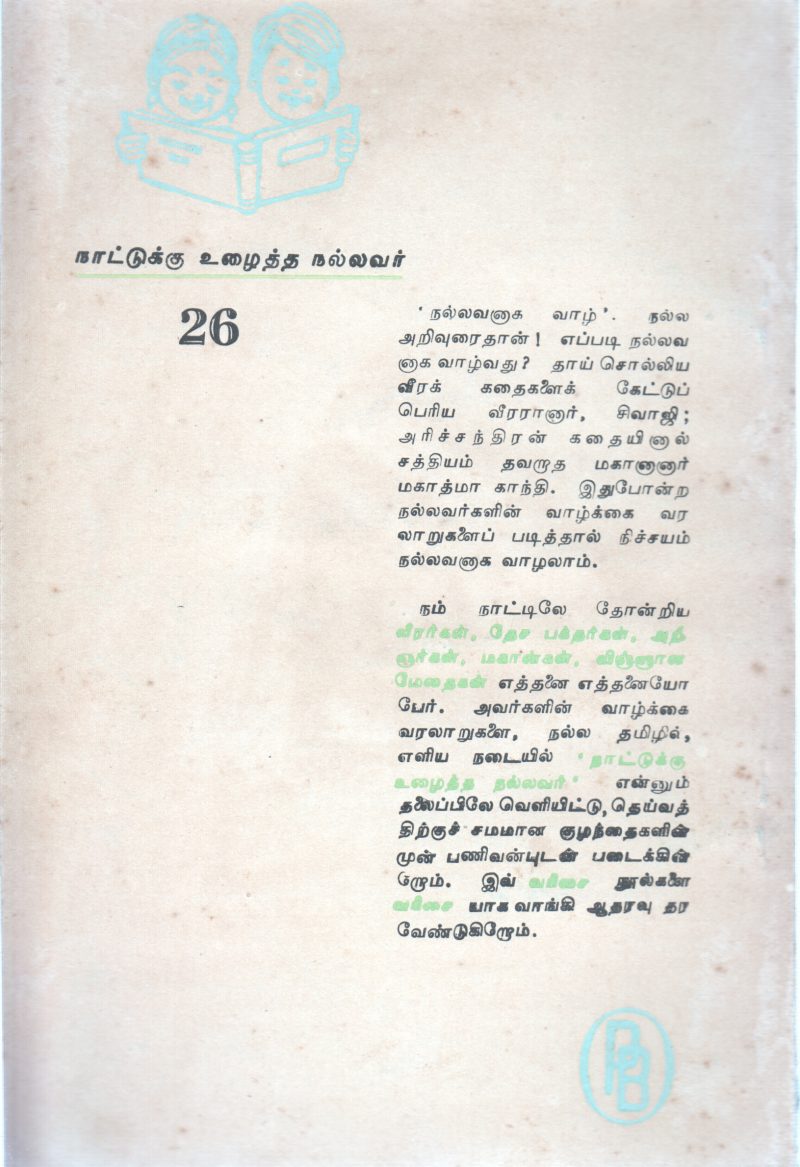 நாட்டுக்கு உழைத்த நல்லவர்
26
'நல்லவனாக வாழ்'. நல்ல
அறிவுரைதான்! எப்படி நல்லவ
னாக வாழ்வது? தாய் சொல்லிய
வீரக் கதைகளைக் கேட்டுப்
பெரிய வீரரானார், சிவாஜி;
அரிச்சந்திரன் கதையினால்
சத்தியம் தவறாத மகானானார்
மகாத்மா காந்தி. இதுபோன்ற
நல்லவர்களின் வாழ்க்கை வர
லாறுகளைப் படித்தால் நிச்சயம்
நல்லவனாக வாழலாம்.
நம் நாட்டிலே தோன்றிய
வீரர்கள், தேச பக்தர்கள், அறி
ஞர்கள், மகான்கள், விஞ்ஞான
மேதைகள் எத்தனை எத்தனையோ
பேர். அவர்களின் வாழ்க்கை
வரலாறுகளை, நல்ல தமிழில்,
எளிய நடையில் 'நாட்டுக்கு
உழைத்த நல்லவர்' என்னும்
தலைப்பிலே வெளியிட்டு, தெய்வத்
திற்குச் சமமான குழந்தைகளின்
முன் பணிவன்புடன் படைக்கின்
றோம். இவ் வரிசை நூல்களை
வரிசை யாக வாங்கி ஆதரவு தர
வேண்டுகிறோம்.